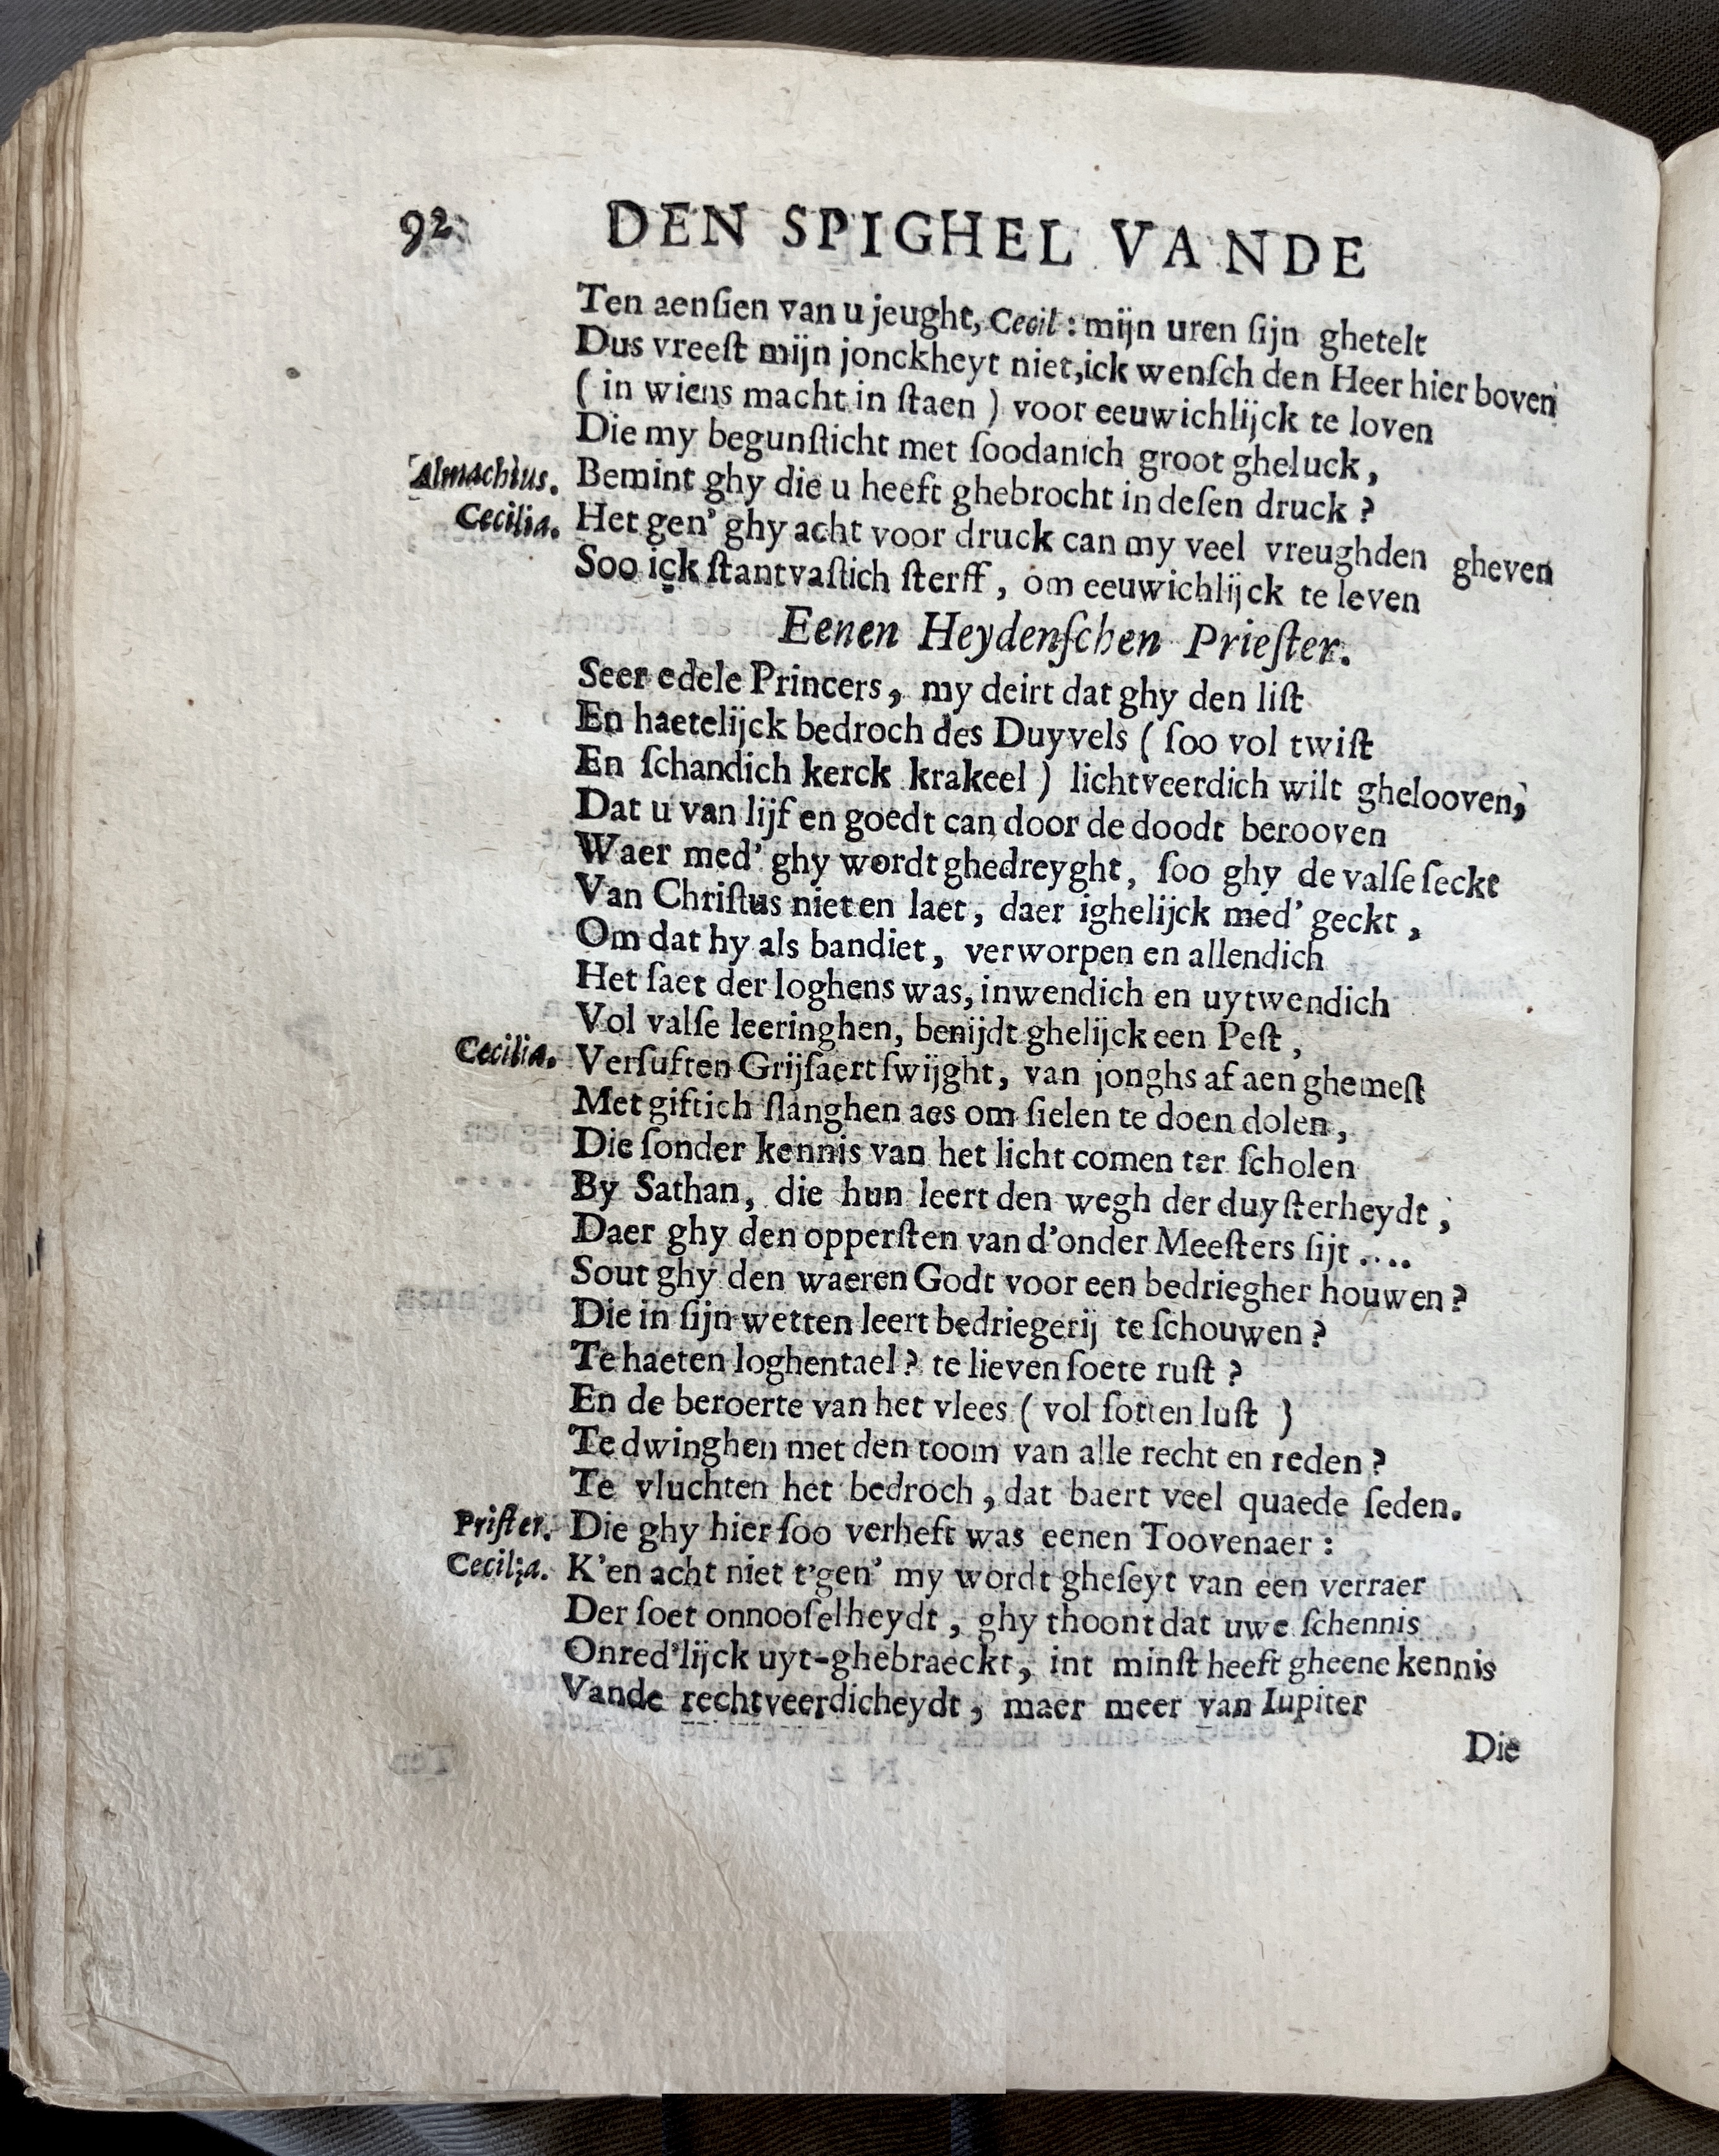 92 DEN SPIGHEL VANDE
Ten aenſien van u jeught, Cecil: mijn uren ſijn ghetelt
Dus vreeſt mijn jonckheyt niet, ick wenſch den Heer hier boven
( in wiens macht in ſtaen ) voor eeuwichlijck te loven
Die my begunſticht met ſoodanich groot gheluck,
Almachius. Bemint ghy die u heeft ghebrocht in deſen druck ?
Cecilia. Het gen' ghy acht voor druck can my veel vreughden gheven
Soo ick ſtantvaſtich ſterff, om eeuwichlijck te leven
Eenen Heydenſchen Prieſter.
Seer edele Princers, my deirt dat ghy den liſt
En haetelijck bedroch des Duyvels ( ſoo vol twiſt
En ſchandich kerck krakeel ) lichtveerdich wilt ghelooven,
Dat u van lijf en goedt can door de doodt berooven
Waer med' ghy wordt ghedreyght, ſoo ghy de valſe ſeckt
Van Chriſtus niet en laet, daer ighelijck med' geckt,
Om dat hy als bandiet, verworpen en allendich
Het ſaet der loghens was, inwendich en uytwendich
Vol valſe leeringhen, benijdt ghelijck een Peſt,
Cecilia. Verſuften Grijſaert ſwijght, van jonghs af aen ghemeſt
Met giftich ſlanghen aes om ſielen te doen dolen,
Die ſonder kennis van het licht comen ter ſcholen
By Sathan, die hun leert den wegh der duyſterheydt,
Daer ghy den opperſten van d'onder Meeſters ſijt ....
Sout ghy den waeren Godt voor een bedriegher houwen ?
Die in ſijn wetten leert bedriegerij te ſchouwen ?
Te haeten loghentael ? te lieven ſoete ruſt ?
En de beroerte van het vlees ( vol ſotten luſt )
Te dwinghen met den toom van alle recht en reden ?
Te vluchten het bedroch, dat baert veel quaede ſeden.
Priſter. Die ghy hier ſoo verheft was eenen Toovenaer :
Cecilia. K'en acht niet t'gen' my wordt gheſeyt van een verraer
Der ſoet onnooſelheydt, ghy thoont dat uwe ſchennis
Onred'lijck uyt-ghebraeckt, int minſt heeft gheene kennis
Vande rechtveerdicheydt, maer meer van Iupiter
Die